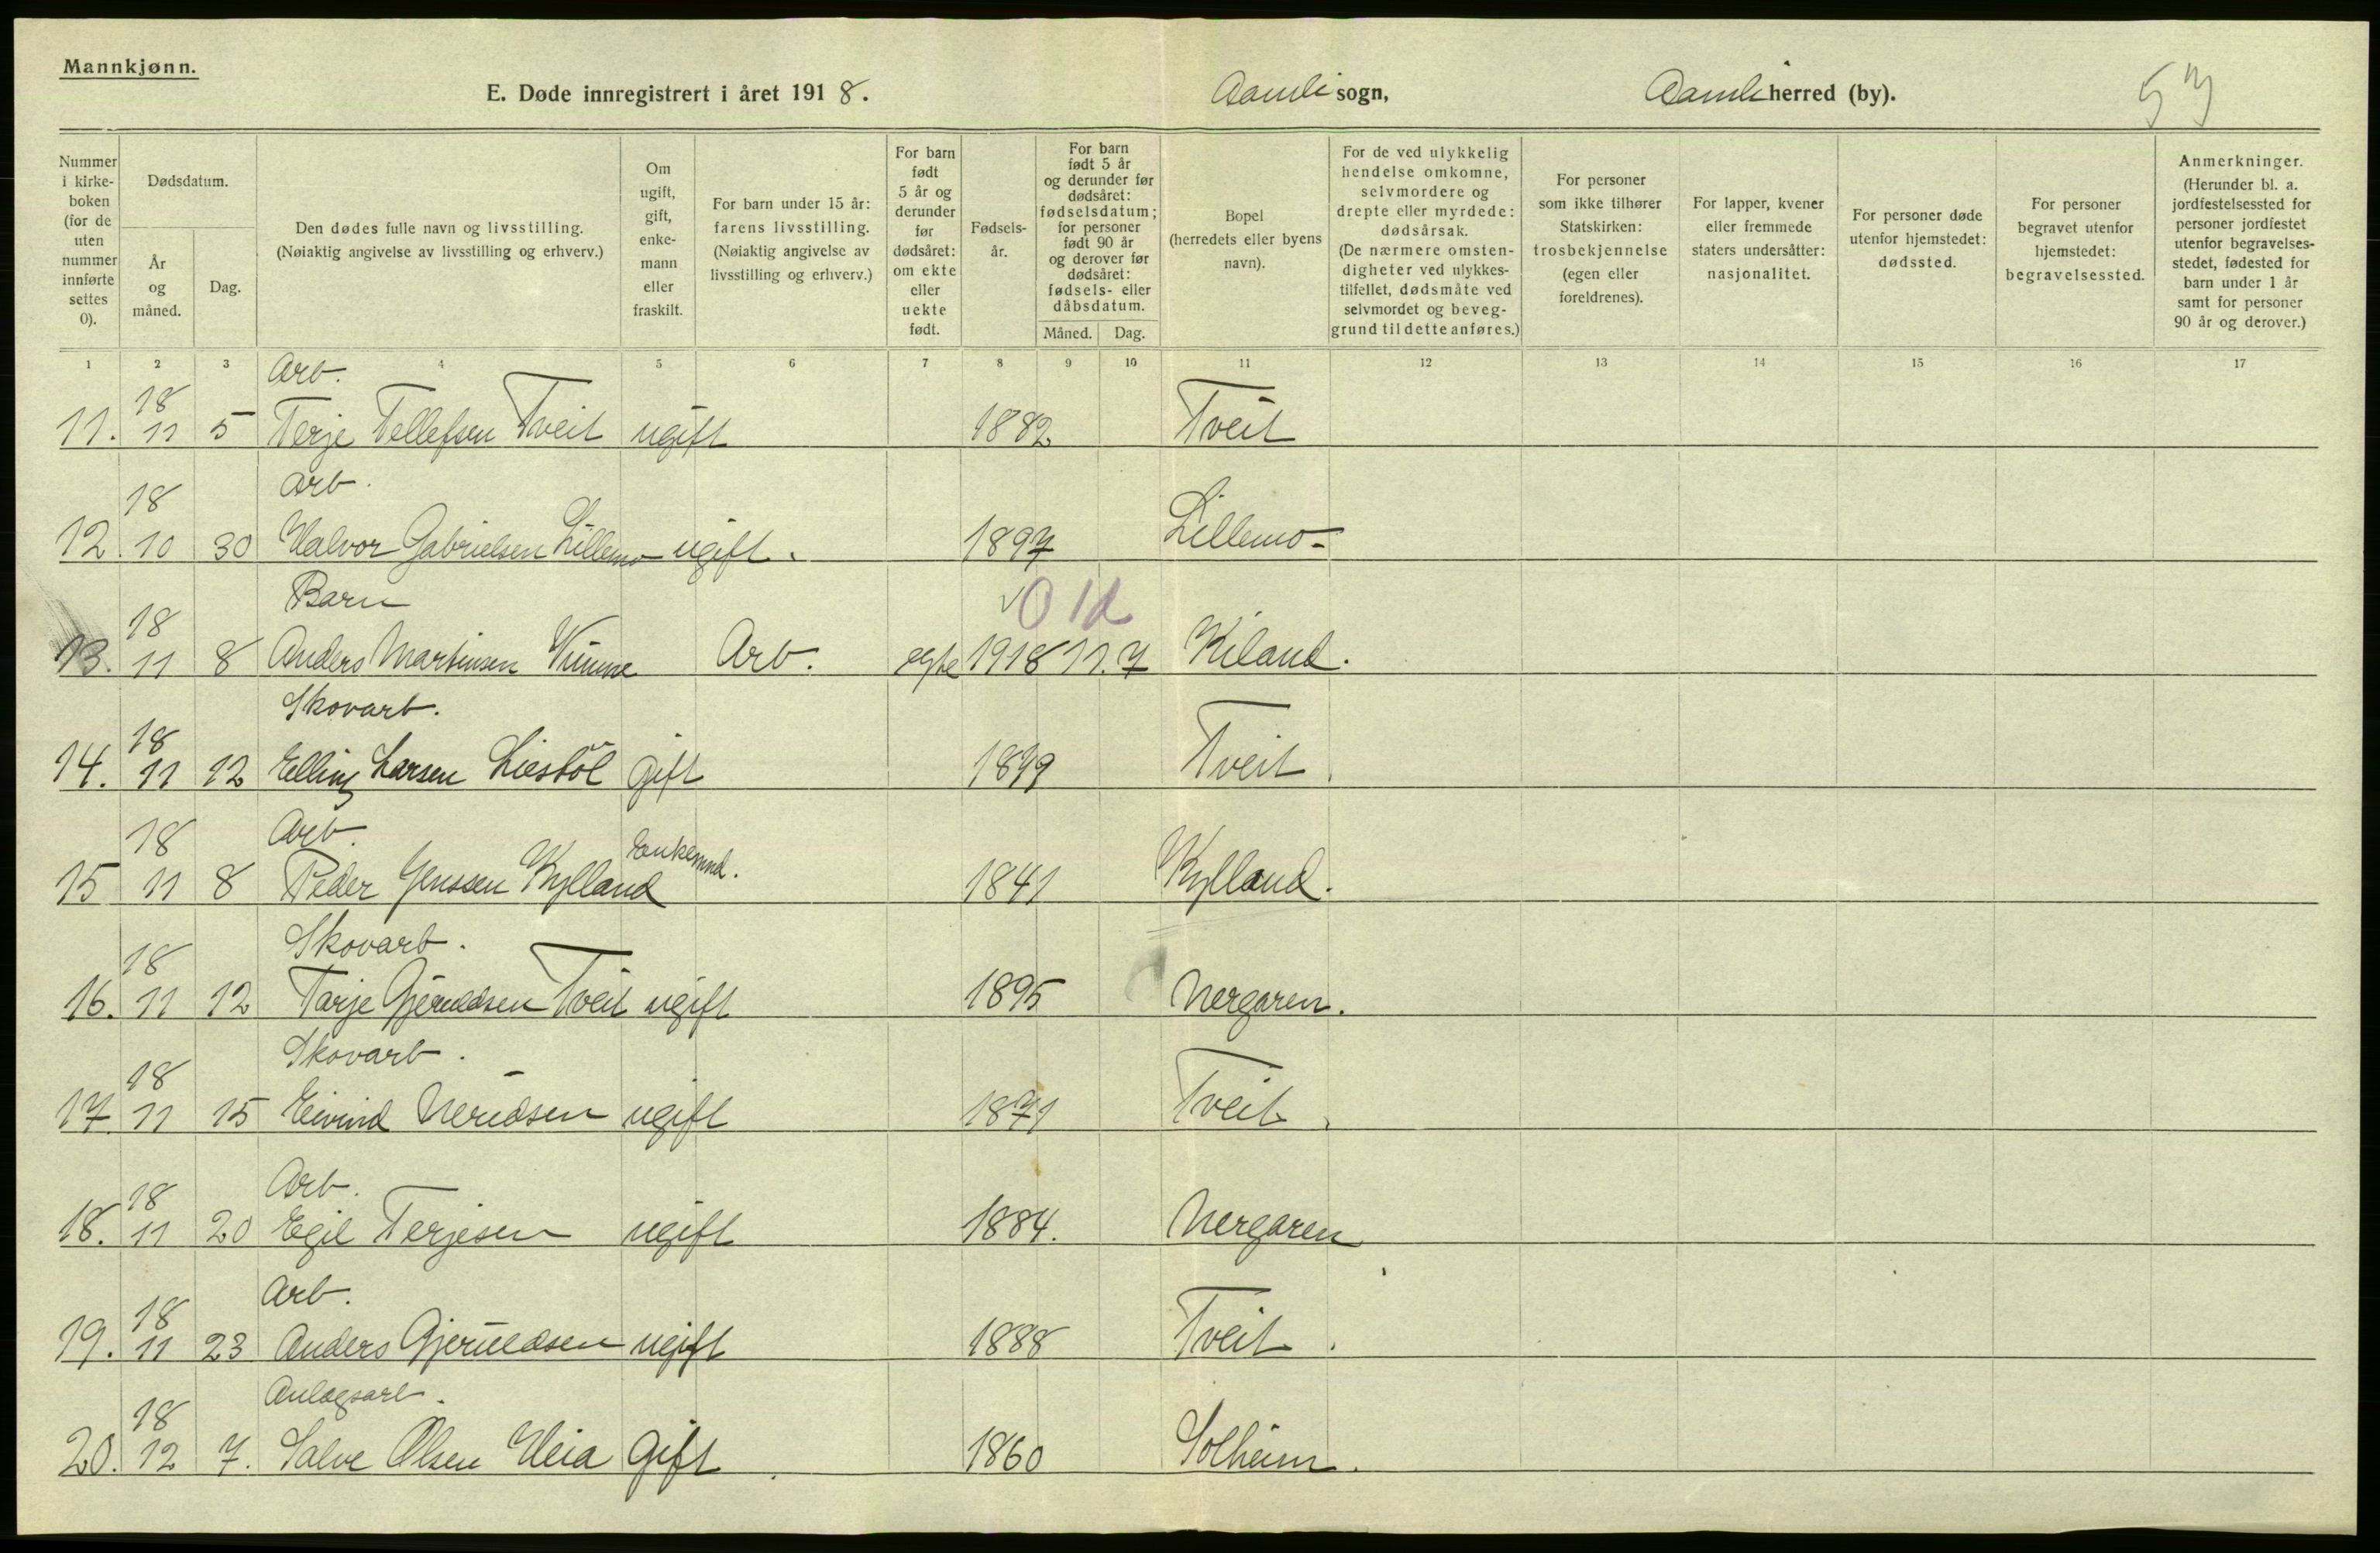 Mannkjønn.
E. Døde innregistrert i året 1918. Aamli sogn, Aamli herred (by). 53
Nummer i kirke-boken (for de uten nummer innførte settes 0).
Dødsdatum.
År og måned.
Dag.
Den dødes fulle navn og livsstilling.
(Nøiaktig angivelse av livsstilling og erhverv.)
Om ugift, gift, enke-mann eller fraskilt.
For barn under 15 år: farens livsstilling. (Nøiaktig angivelse av livsstilling og erhverv.)
For barn født 5 år og derunder før dødsåret: om ekte eller uekte født.
Fødsels-år.
For barn født 5 år og derunder før dødsåret: fødselsdatum; for personer født 90 år og derover før dødsåret: fødsels- eller dåbsdatum.
Måned. Dag.
Bopel (herredets eller byens navn).
For de ved ulykkelig hendelse omkomne, selvmordere og drepte eller myrdede: dødsårsak. (De nærmere omsten-digheter ved ulykkes-tilfellet, dødsmåte ved selvmordet og beveg-grund til dette anføres.)
For personer som ikke tilhører Statskirken: trosbekjennelse (egen eller foreldrenes).
For lapper, kvener eller fremmede staters undersåtter: nasjonalitet.
For personer døde utenfor hjemstedet: dødssted.
For personer begravet utenfor hjemstedet: begravelsessted.
Anmerkninger. (Herunder bl. a. jordfestelsessted for personer jordfestet utenfor begravelses-stedet, fødested for barn under 1 år samt for personer 90 år og derover.)
1 2 3 4 5 6 7 8 9 10 11 12 13 14 15 16 17
Arb.
18
11. 11 5 Terje Tellefsen Tveit ugift 1882 Tveit
Arb.
18
12. 10 30 Halvor Gabrielsen Lillemo ugift. 1897 Lillemo
Barn
18
13. 11 8 Anders Martinsen Arb. egte 1918 11. 7 Kiland.
Skovarb.
18
14. 11 12 Elling Larsen Liestöl gift 1899 Tveit.
18 Arb. Enkemnd.
15 11 8 Peder Jenssen Kylland 1841 Kylland.
Skovarb.
18
16. 11 12 Tarje Gjeruldsen Tveit ugift 1895 Nergaren.
Skovarb.
18
17. 11 15 Eivind Neridsen ugift 1871 Tveit.
Arb.
18
18. 11 20 Egil Terjesen ugift 1884. Nergaren
Arb.
18
19. 11 23 Anders Gjeruldsen ugift 1888 Tveit.
Anlægsarb.
18
20. 12 7. Salve Olsen Heia gift 1860 Solheim.